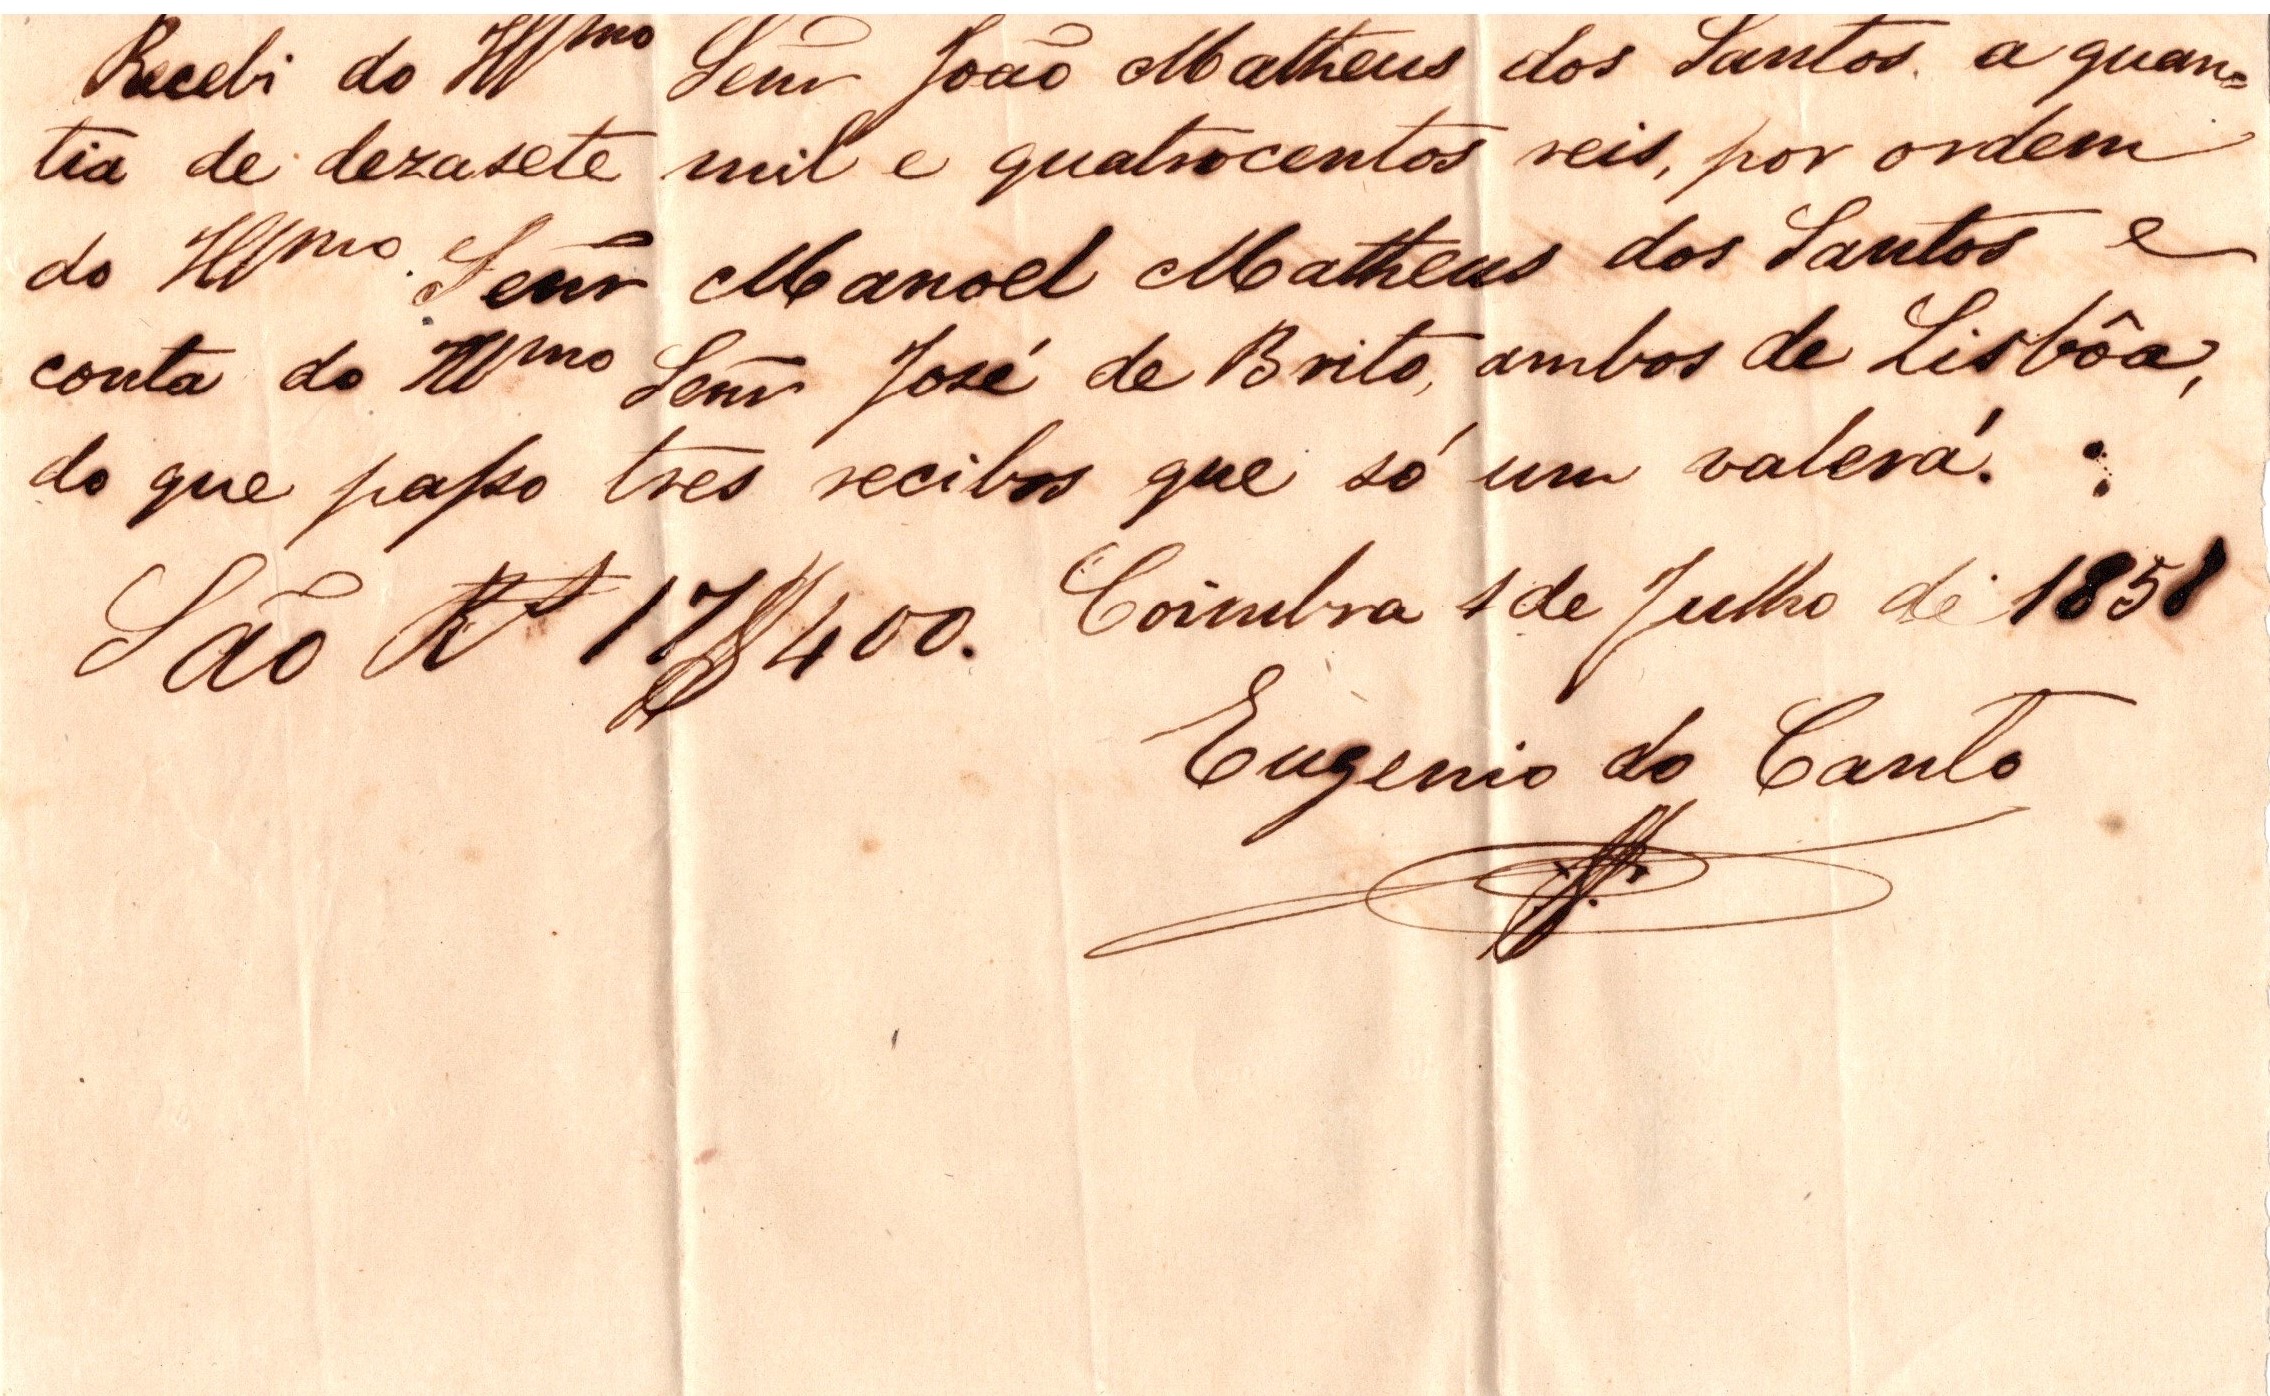 Recebi do Illmo Senr João Matheus dos Santos. a quan=
tia de dezasete mil e quatrocentos reis, por ordem
do Illmo. Senr Manoel Matheus dos Santos e
conta do Illmo Senr José de Brito, ambos de Lisbôa,
do que passo tres recibos que só um valerá.
São Rs 17$400. Coimbra 1 de Julho de 1858
Eugenio do Canto